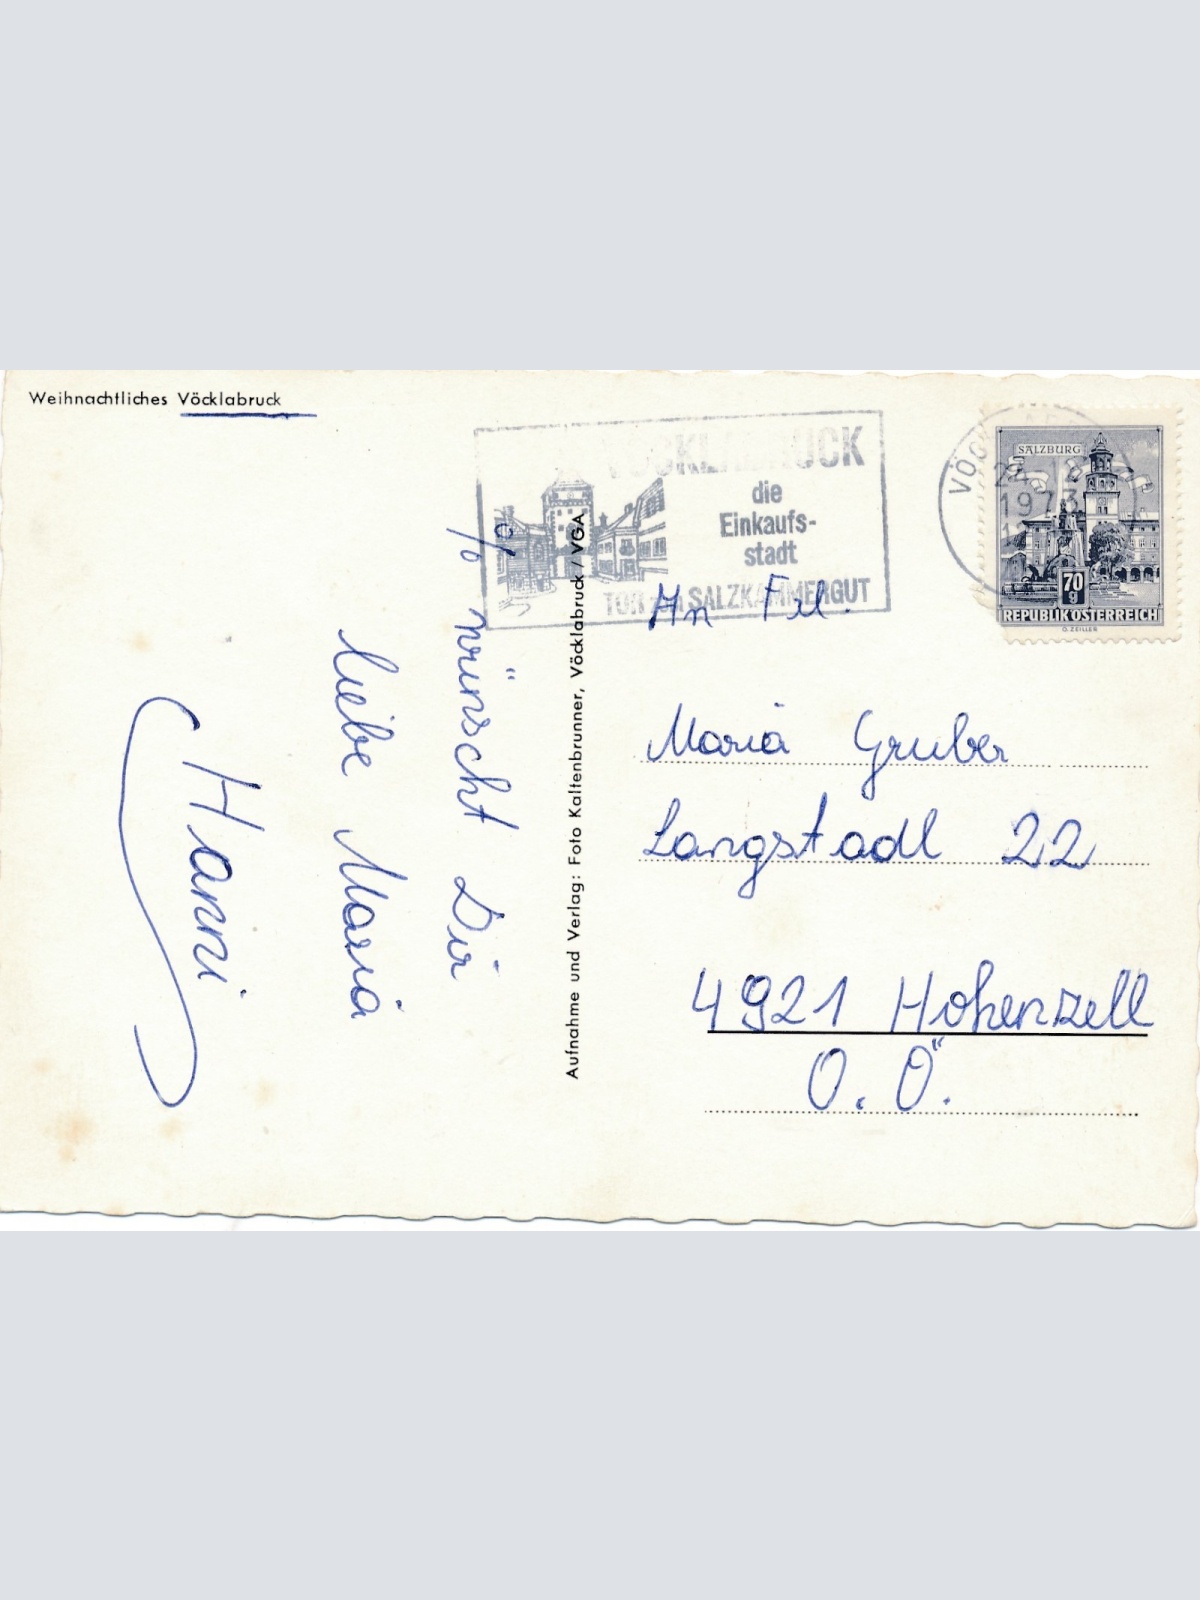 Weihnachtliches Vöcklabruck
VÖCKLABRUCK
die
Einkaufs-
stadt
TOR zum SALZKAMMERGUT
SALZBURG
1973
70
g
REPUBLIK ÖSTERREICH
O. ZEILLER
% wünscht Dir
liebe Maria
Hanni
Aufnahme und Verlag: Foto Kaltenbrunner, Vöcklabruck / VGA
An Frl.
Maria Gruber
Langstadl 22
4921 Hohenzell
O.Ö.